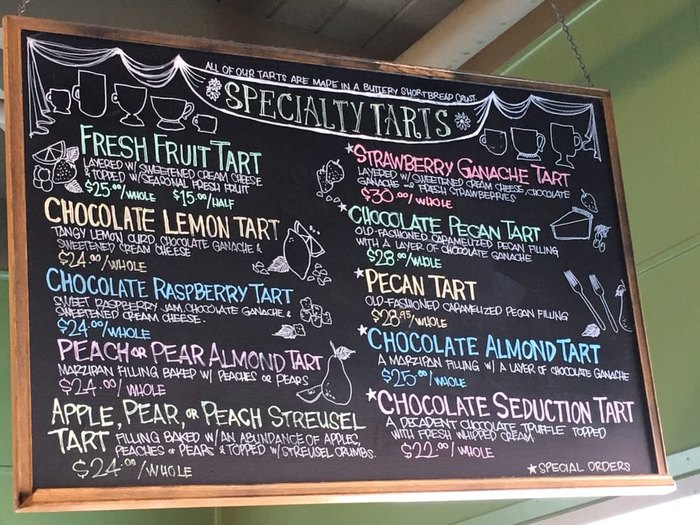 ALL OF OUR TARTS ARE MADE IN A BUTTERY SHORTBREAD CRUST
SPECIALTY TARTS
FRESH FRUIT TART
LAYERED W/ SWEETENED CREAM CHEESE
& TOPPED W/ SEASONAL FRESH FRUIT
$25.00/WHOLE $15.00/HALF
CHOCOLATE LEMON TART
TANGY LEMON CURD, CHOCOLATE GANACHE &
SWEETENED CREAM CHEESE
$24.00/WHOLE
CHOCOLATE RASPBERRY TART
SWEET RASPBERRY JAM, CHOCOLATE GANACHE &
SWEETENED CREAM CHEESE.
$24.00/WHOLE
PEACH OR PEAR ALMOND TART
MARZIPAN FILLING BAKED W/ PEACHES OR PEARS
$24.00/WHOLE
APPLE, PEAR, OR PEACH STREUSEL
TART FILLING BAKED W/ AN ABUNDANCE OF APPLES,
PEACHES OR PEARS & TOPPED W/ STREUSEL CRUMBS.
$24.00/WHOLE
★STRAWBERRY GANACHE TART
LAYERED W/ SWEETENED CREAM CHEESE, CHOCOLATE
GANACHE FRESH STRAWBERRIES
$30.00/WHOLE
★CHOCOLATE PECAN TART
OLD-FASHIONED CARAMELIZED PECAN FILLING
WITH A LAYER OF CHOCOLATE GANACHE
$28.00/WHOLE
★PECAN TART
OLD-FASHIONED CARAMELIZED PECAN FILLING
$28.95/WHOLE
★CHOCOLATE ALMOND TART
A MARZIPAN FILLING W/ A LAYER OF CHOCOLATE GANACHE
$25.00/WHOLE
★CHOCOLATE SEDUCTION TART
A DECADENT CHOCOLATE TRUFFLE TOPPED
WITH FRESH WHIPPED CREAM
$22.00/WHOLE
★SPECIAL ORDERS